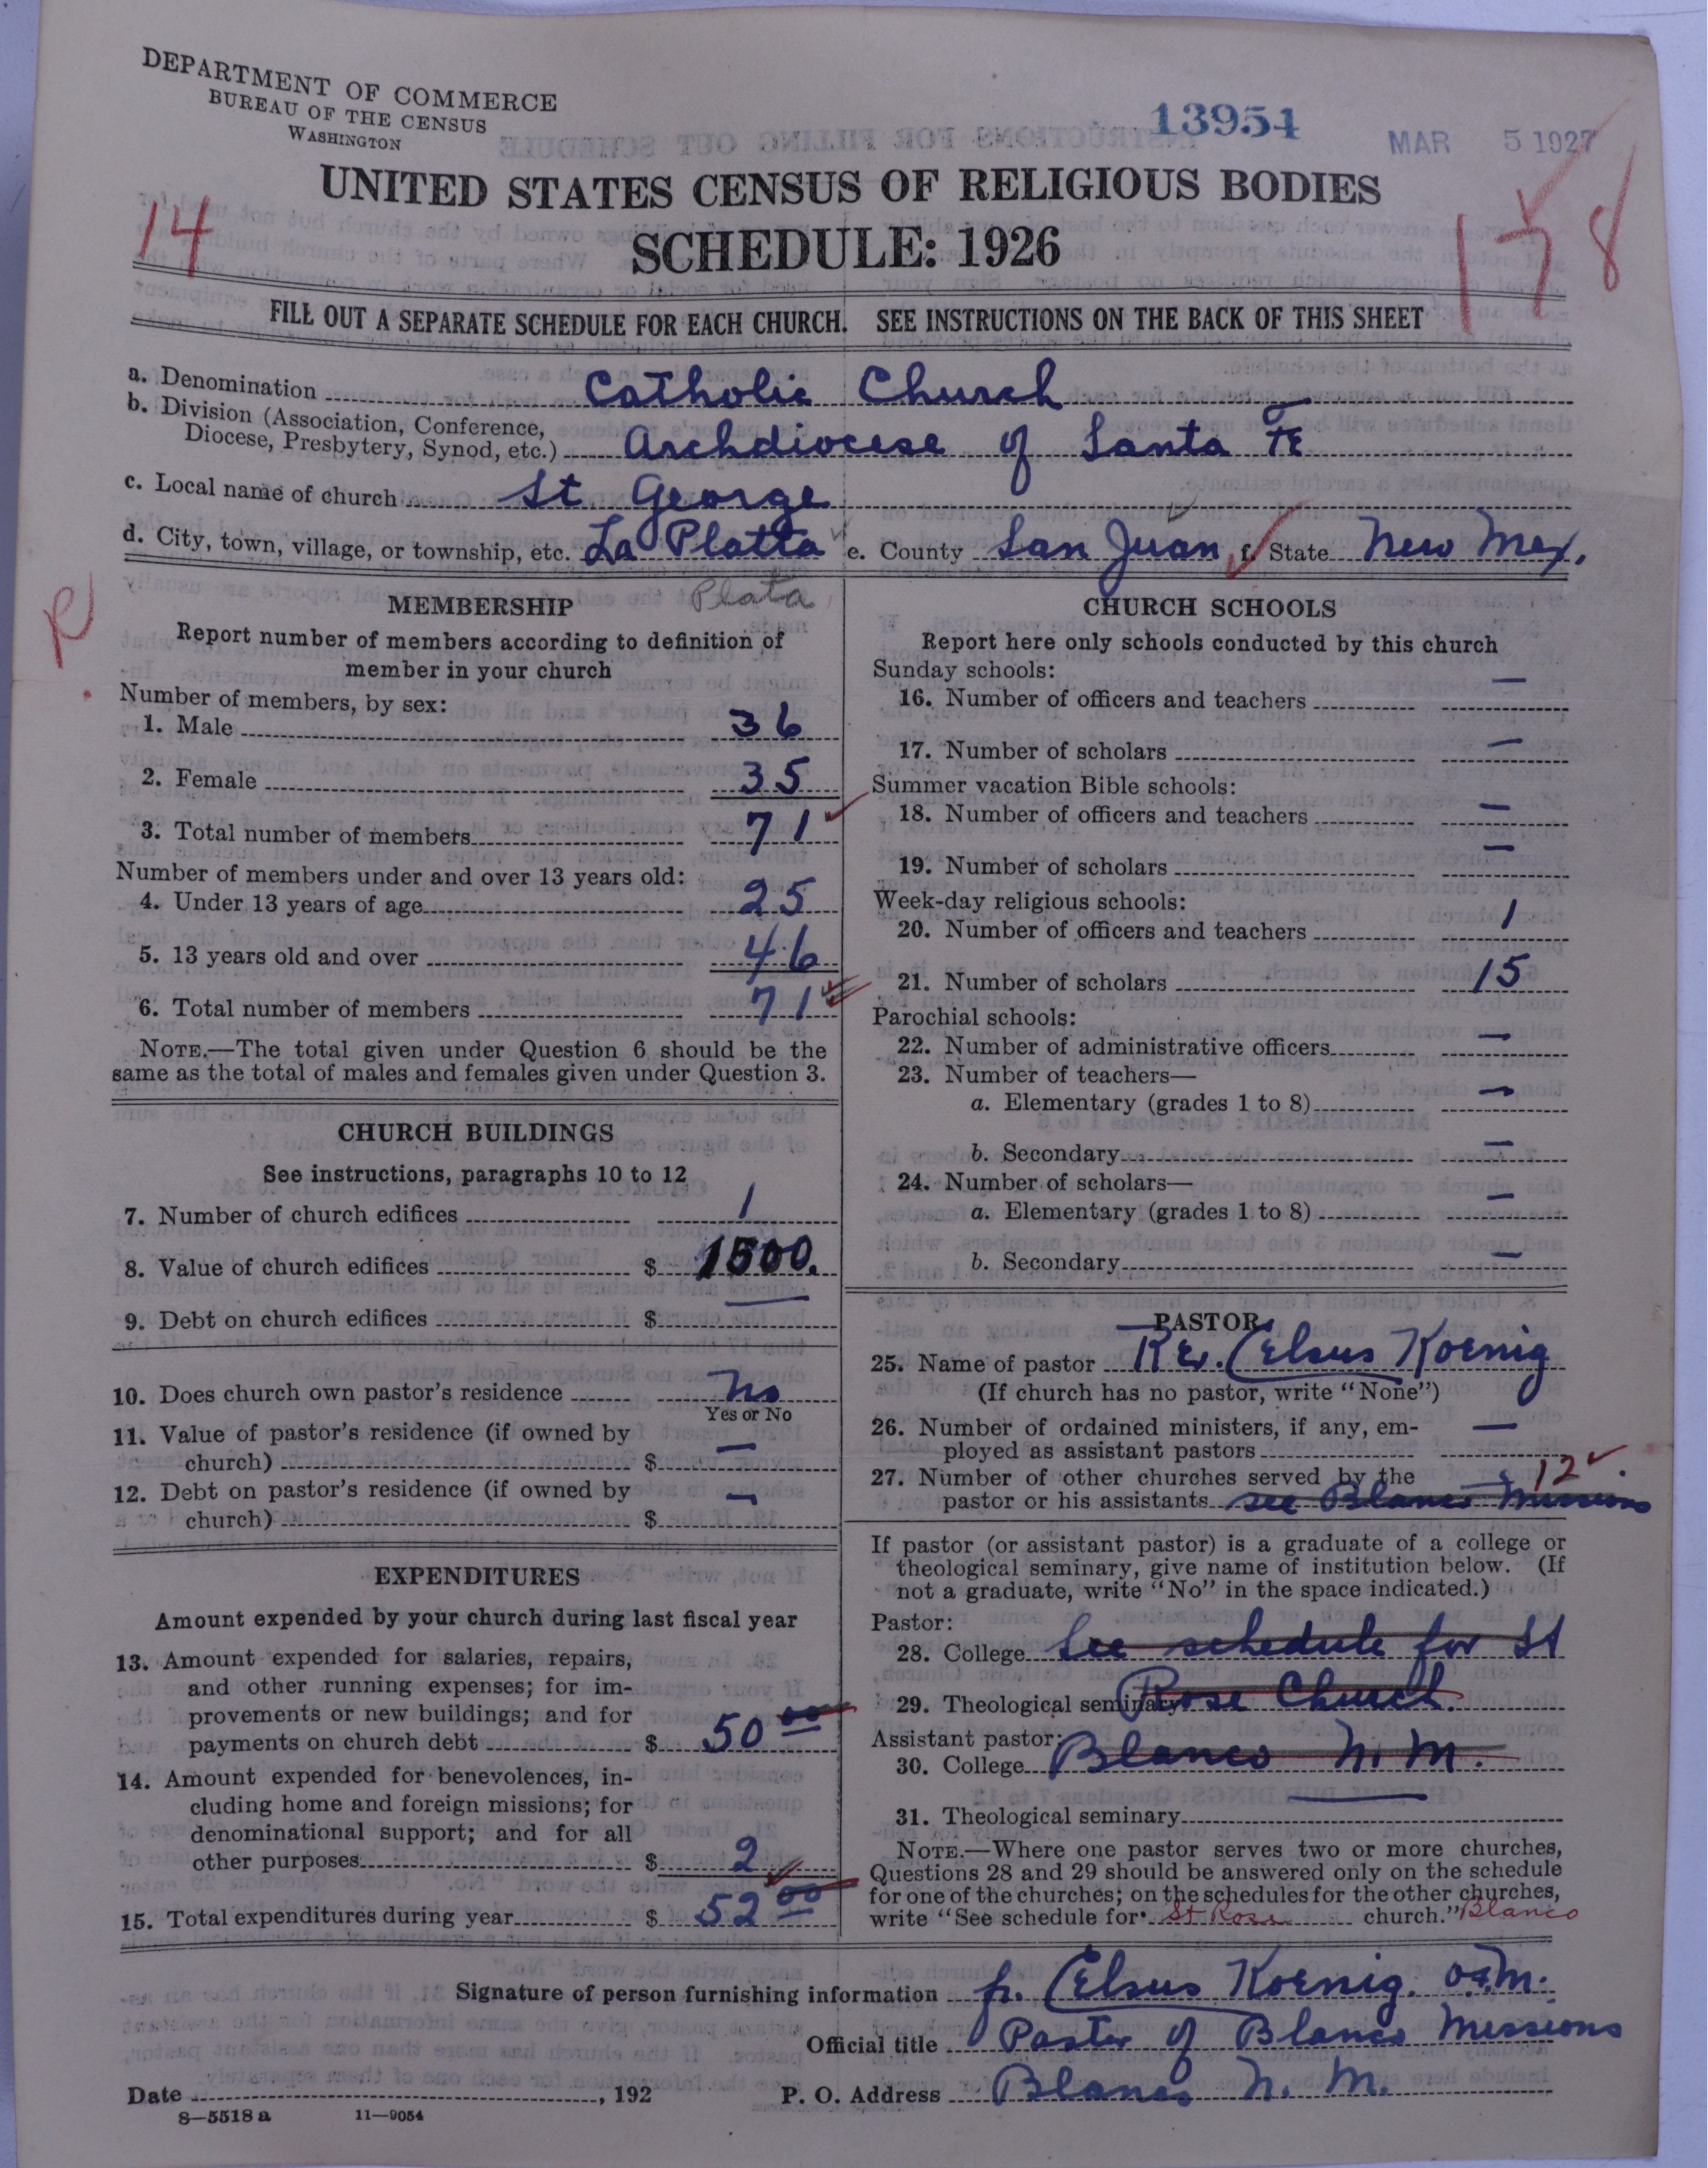 DEPARTMENT OF COMMERCE
BUREAU OF THE CENSUS
WASHINGTON
13954
MAR 5 1927
UNITED STATES CENSUS OF RELIGIOUS BODIES
14
SCHEDULE: 1926
158
FILL OUT A SEPARATE SCHEDULE FOR EACH CHURCH. SEE INSTRUCTIONS ON THE BACK OF THIS SHEET
a. Denomination Catholic Church
b. Division (Association, Conference,
Diocese, Presbytery, Synod, etc.) Archdiocese of Santa Fe
c. Local name of church St George
d. City, town, village, or township, etc. La Platta e. County San Juan f. State New Mex.
Plata
R
MEMBERSHIP
Report number of members according to definition of
member in your church
Number of members, by sex:
1. Male 36
2. Female 35
3. Total number of members 71
Number of members under and over 13 years old:
4. Under 13 years of age 25
5. 13 years old and over 46
6. Total number of members 71
NOTE.—The total given under Question 6 should be the
same as the total of males and females given under Question 3.
CHURCH BUILDINGS
See instructions, paragraphs 10 to 12
7. Number of church edifices 1
8. Value of church edifices $ 1500.
9. Debt on church edifices $ —
10. Does church own pastor's residence No
Yes or No
11. Value of pastor's residence (if owned by
church) $ —
12. Debt on pastor's residence (if owned by
church) $ —
EXPENDITURES
Amount expended by your church during last fiscal year
13. Amount expended for salaries, repairs,
and other running expenses; for im-
provements or new buildings; and for
payments on church debt $ 50 00
14. Amount expended for benevolences, in-
cluding home and foreign missions; for
denominational support; and for all
other purposes $ 2
15. Total expenditures during year $ 52 00
CHURCH SCHOOLS
Report here only schools conducted by this church
Sunday schools:
16. Number of officers and teachers —
17. Number of scholars —
Summer vacation Bible schools:
18. Number of officers and teachers —
19. Number of scholars —
Week-day religious schools:
20. Number of officers and teachers 1
21. Number of scholars 15
Parochial schools:
22. Number of administrative officers —
23. Number of teachers—
a. Elementary (grades 1 to 8) —
b. Secondary —
24. Number of scholars—
a. Elementary (grades 1 to 8) —
b. Secondary —
PASTOR
25. Name of pastor Rev. Celsus Koenig
(If church has no pastor, write "None")
26. Number of ordained ministers, if any, em-
ployed as assistant pastors —
27. Number of other churches served by the 12
pastor or his assistants see Blanco Missions
If pastor (or assistant pastor) is a graduate of a college or
theological seminary, give name of institution below. (If
not a graduate, write "No" in the space indicated.)
Pastor:
28. College See schedule for St
29. Theological seminary Rose Church.
Assistant pastor:
30. College Blanco N. M.
31. Theological seminary —
NOTE.—Where one pastor serves two or more churches,
Questions 28 and 29 should be answered only on the schedule
for one of the churches; on the schedules for the other churches,
write "See schedule for St Rose church." Blanco
Signature of person furnishing information fr. Celsus Koenig. O.F.M.
Official title Pastor of Blanco Missions
Date , 192 P. O. Address Blanco N. M.
8—5518 a 11—9054